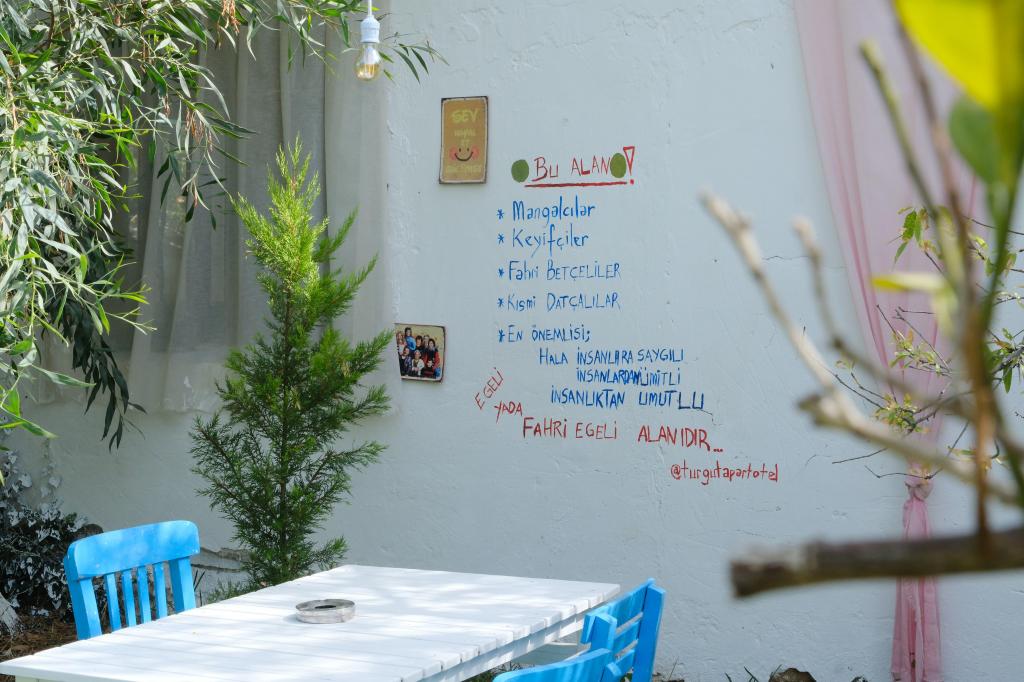 SEV
BU ALAN!
* Mangalcılar
* Keyifçiler
* Fahri BETÇELİLER
* Kısmi DATÇALILAR
* EN ÖNEMLİSİ;
HALA İNSANLARA SAYGILI
İNSANLARDAN ÜMİTLİ
İNSANLIKTAN UMUTLU
EGELİ
YADA
FAHRİ EGELİ ALANIDIR...
@turgutapartotel